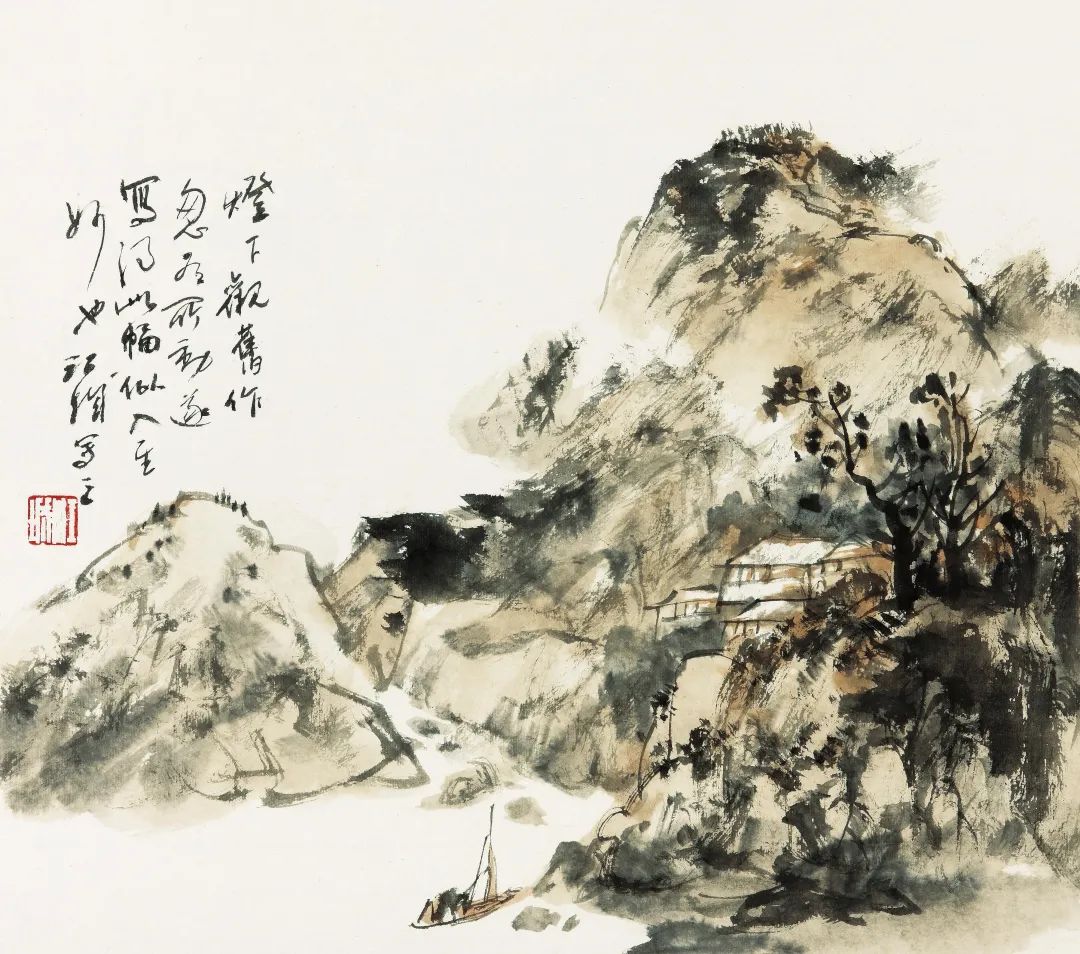 燈下觀舊作
忽有所動遂
寫得此幅似入
妙也